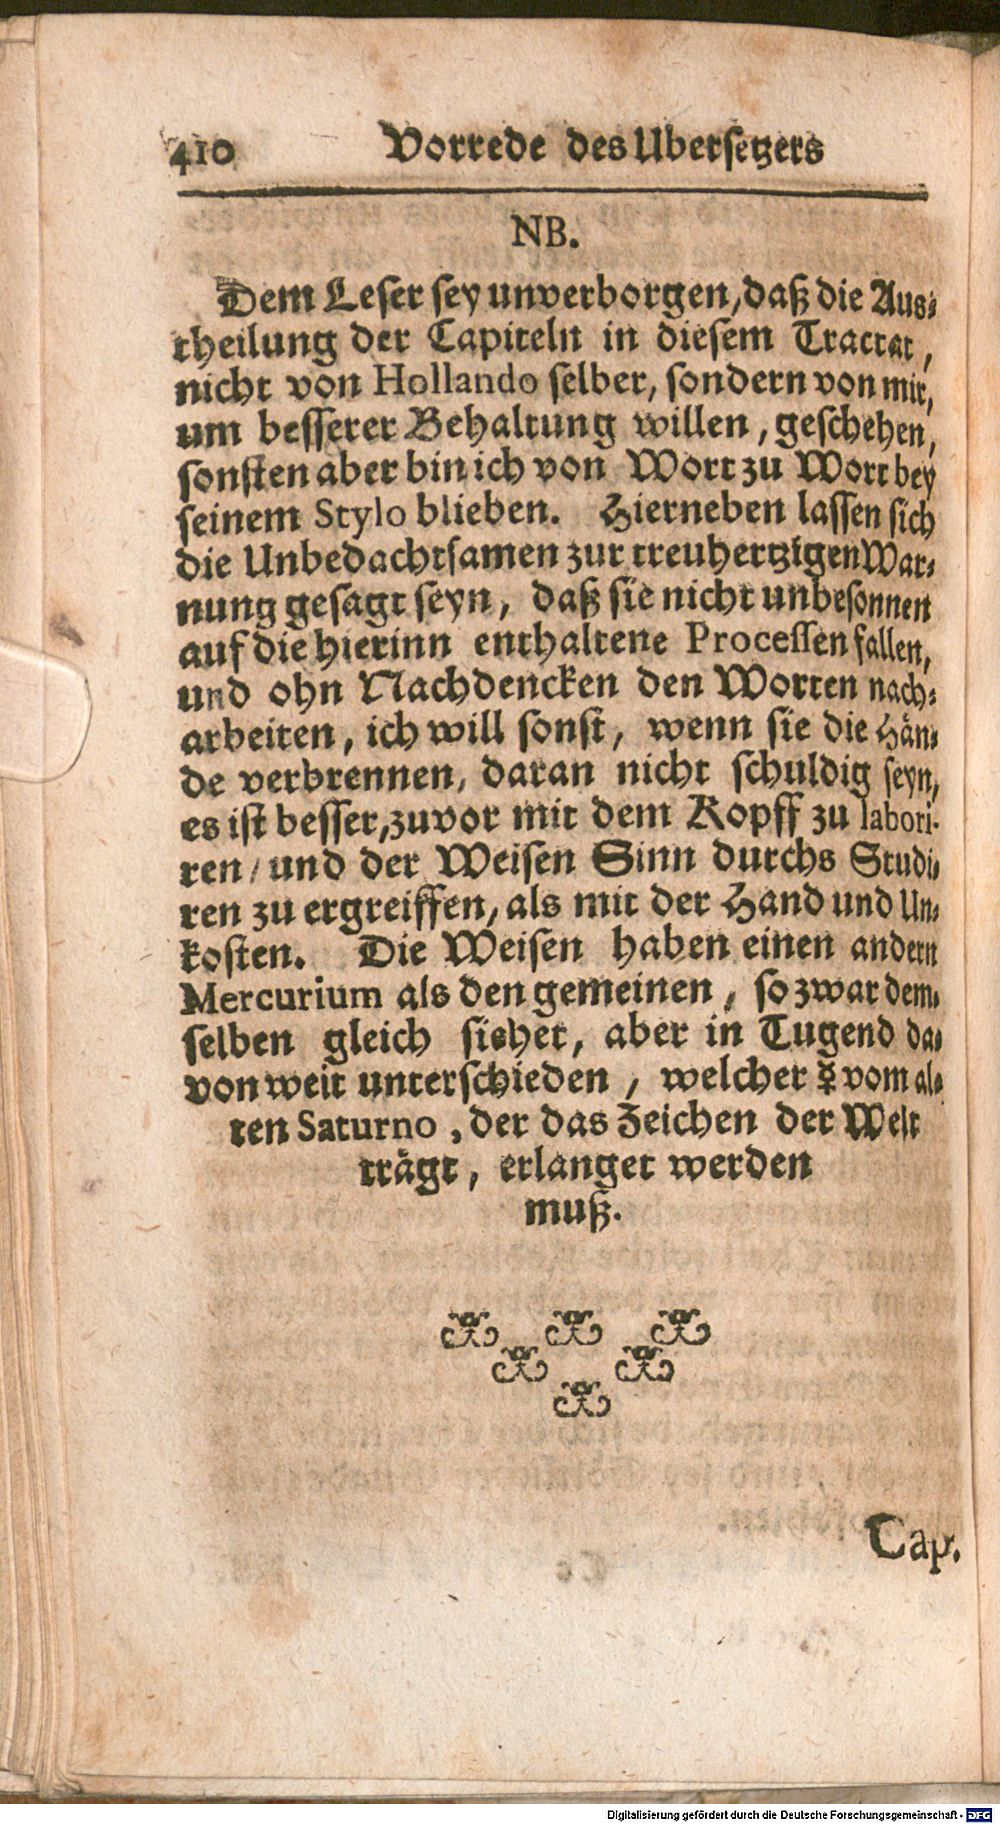 410 Vorrede des Ubersetzers
NB.
Dem Leser sey unverborgen, daß die Aus-
theilung der Capiteln in diesem Tractat,
nicht von Hollando selber, sondern von mir,
um besserer Behaltung willen, geschehen,
sonsten aber bin ich von Wort zu Wort bey
seinem Stylo blieben. Hierneben lassen sich
die Unbedachtsamen zur treuhertzigen War-
nung gesagt seyn, daß sie nicht unbesonnen
auf die hierinn enthaltene Processen fallen,
und ohn Nachdencken den Worten nach-
arbeiten, ich will sonst, wenn sie die Hän-
de verbrennen, daran nicht schuldig seyn,
es ist besser, zuvor mit dem Kopff zu labori-
ren / und der Weisen Sinn durchs Studi-
ren zu ergreiffen, als mit der Hand und Un-
kosten. Die Weisen haben einen andern
Mercurium als den gemeinen, so zwar dem-
selben gleich siehet, aber in Tugend da-
von weit unterschieden, welcher ☿ vom al-
ten Saturno, der das Zeichen der Welt
trägt, erlanget werden
muß.
Cap.
Digitalisierung gefördert durch die Deutsche Forschungsgemeinschaft - DFG